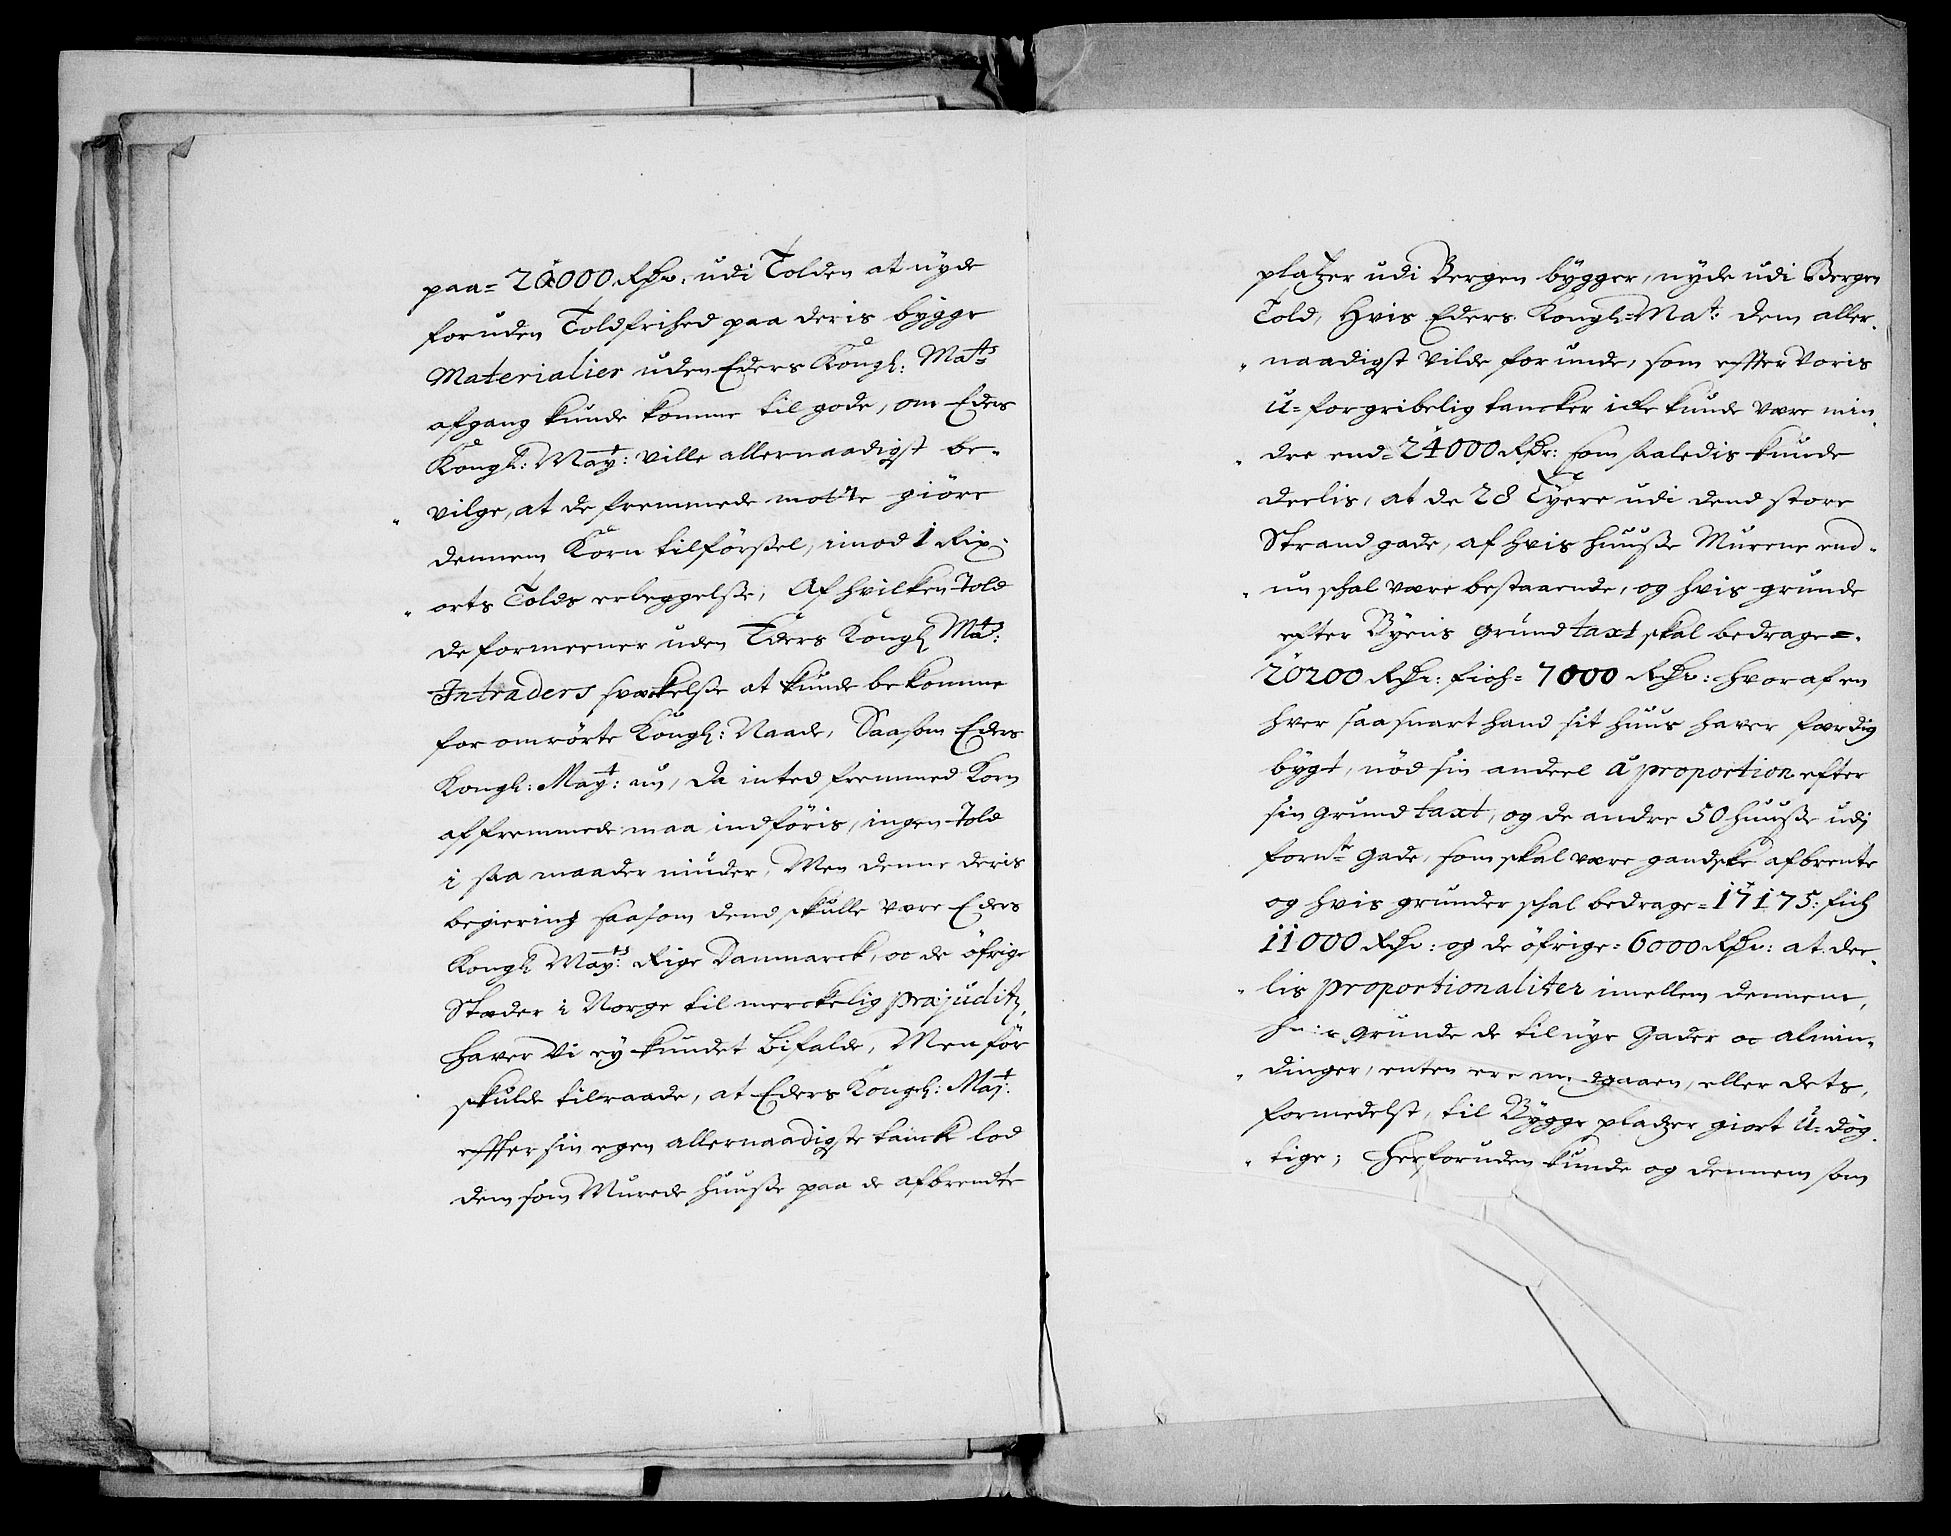 paa= 20000 Rdr: udi Tolden at nyde
foruden Toldfrihed paa deris bygge
Materialier uden Eders Kongl: Matts
afgang kunde komme til gode, om Eders
Kongl: Mayt: ville allernaadigst be-
vilge, at de fremmede motte giöre
dennem Korn tilförßel, imod 1 Rix-
orts Tolds erleggelße, Af hvilken Told
de formeener uden Eders Kongl Matts:
Intraders svæckelße at kunde bekomme
for omrörte Kongl: Naade, Saasom Eders
Kongl: Mayt: nu, da inted fremmed Korn
af fremmede maa indföris, ingen Told
i saa maader niuder, Men denne deris
begiering saasom dend skulle være Eders
Kongl Mayts: Rige Danmarck, oc de öfrige
Stæder i Norge til merckelig præjuditz,
haver Vi ey kundet bifalde, Men för
skulde tilraade, at Eders Kongl: Mayt:
effter sin egen allernaadigste tancke lod
dem som Murede Huuße paa de afbrendte
platzer udi Bergen bygger, nyde udi Bergen
Told, Hvis Eders Kongl= Matt: dem aller-
naadigst vilde forunde, som effter voris
u=forgribelig tancker icke kunde være min-
dre end= 24000 Rdr: som saaledis kunde
deelis, at de 28 Eyere udi dend store
Strandgade, af hvis huuße Murene end-
nu schal være bestaaende, og hvis grunde
efter Byens grund taxt skal bedrage=
20200 Rdr: fich= 7000 Rdr: hvoraf en
hver saa snart hand sit huus haver færdig
bygt, nöd sin andeel à proportion efter
sin grund taxt, og de andre 50 huuße udj
fornte gade, som skal være gandske afbrente
og hvis grunder schal bedrage= 17175: fich
11000 Rdr: og de öfrige= 6000 Rdr: at dee-
lis proportionaliter imellem dennem,
grunde de til nye Gader oc almin-
dinger, enten ere, eller dets,
formedelst, til Bygge pladzer giort u=dög-
tige; Herforuden kunde og dennem som